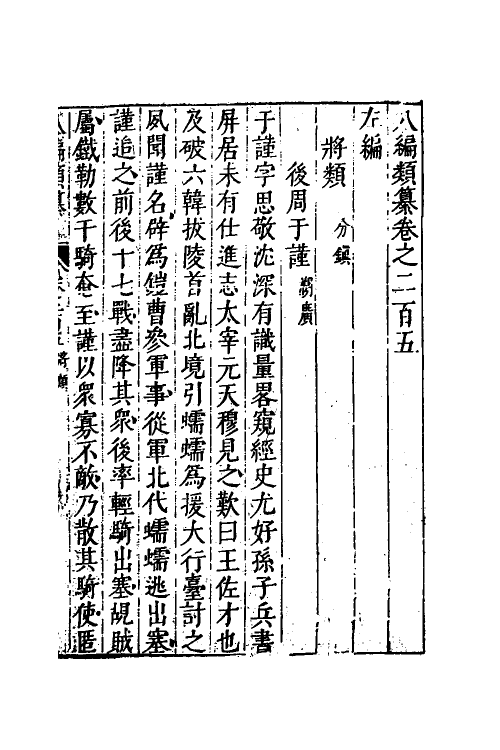 八編類纂卷之二百五
左編
將類 分鎮
後周于謹
于謹字思敬沈深有識量畧窺經史尤好孫子兵書
屏居未有仕進志太宰元天穆見之歎曰王佐才也
及破六韓拔陵首亂北境引蠕蠕為援大行臺討之
夙聞謹名辟為鎧曹參軍事從軍北伐蠕蠕逃出塞
謹追之前後十七戰盡降其衆後率輕騎出塞覘賊
屬鐵勒數千騎奄至謹以衆寡不敵乃散其騎使匿
八編類纂